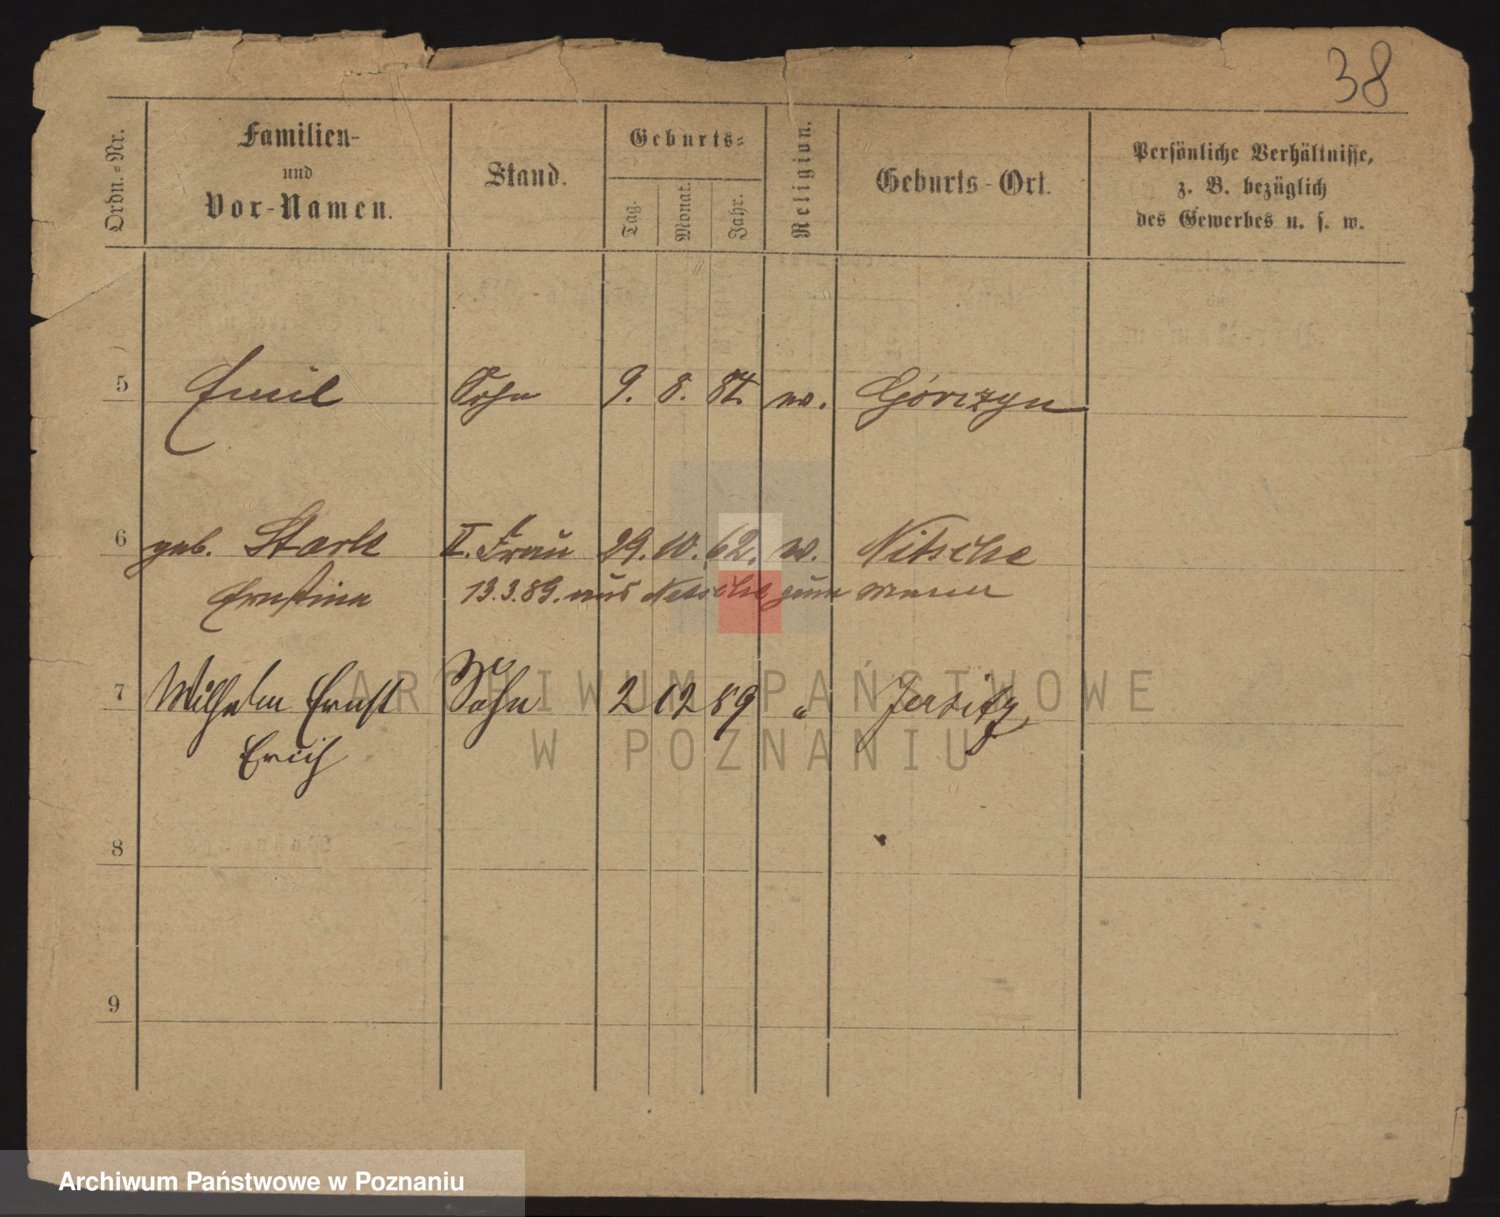 38
Ordn.-Nr.
Familien-
und
Vor-Namen.
Stand.
Geburts-
Tag.
Monat.
Jahr.
Religion.
Geburts-Ort.
Persönliche Verhältnisse,
z. B. bezüglich
des Gewerbes u. s. w.
5 Emil Sohn 9. 8. 87. ev. Górczyn
6 geb. Stark II. Frau 29. 10. 62. ev. Nitsche
Ernstine 13.3.89. aus Netsche zum Mann
7 Wilhelm Ernst Sohn 2 12 89 " Jersitz
Erich
8
9
ARCHIWUM PAŃSTWOWE
W POZNANIU
Archiwum Państwowe w Poznaniu